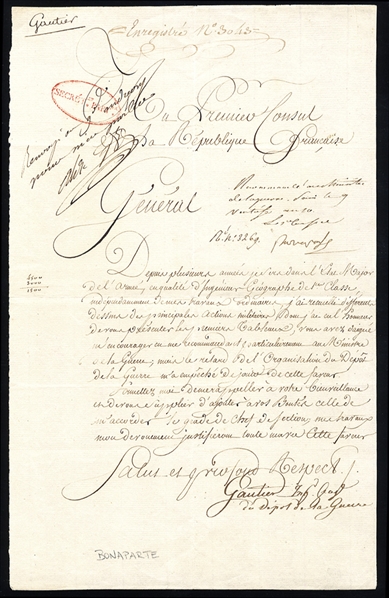 Gautier
Enregistré N.° 3043
SECRÉT
Au Premier Consul
De la République Française
Renvoyé au
Général
Recommandé au Ministre
de la guerre. Paris le 9
an 10
Le 1er Consul
R. N.° 3269.
1500
2000
1500
Depuis plusieurs années je sers dans l'Etat Major
de l'Armée, en qualité d'Ingénieur Géographe de 1re Classe,
indépendamment de mes travaux ordinaires, j'ai recueilli différents
dessins des principales Actions militaires dont j'ai eu l'honneur
de vous présenter les premiers Tableaux, vous avez daigné
m'encourager en me recommandant particulièrement au Ministre
de la Guerre; mais le retard de l'Organisation du Dépôt
de la Guerre m'a empêché de jouir de cette faveur
Permettez moi de me rappeller à votre bienveillance
et de vous supplier d'ajouter à vos Bontés celle de
m'accorder le grade de Chef de Section; mes travaux
mon dévouement justifieront toute ma vie Cette faveur
Salut et profond Respect.
Gautier Ing. Géog.
du Dépôt de la Guerre
BONAPARTE